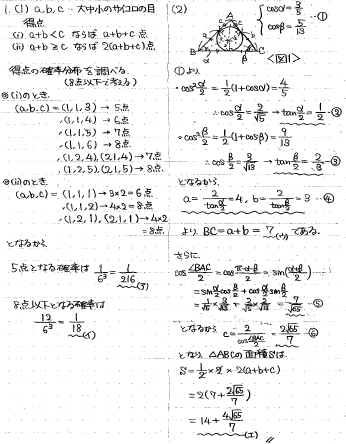 1. (1) a, b, c … 大中小のサイコロの目
得点
(i) a+b<c ならば a+b+c点
(ii) a+b≧c ならば 2(a+b+c)点
得点の確率分布を調べる.
(8点以下で考える)
◎(i)のとき
(a,b,c) = (1,1,3) → 5点
〃 (1,1,4) → 6点
〃 (1,1,5) → 7点
〃 (1,1,6) → 8点
〃 (1,2,4),(2,1,4) → 7点
〃 (1,2,5),(2,1,5) → 8点
◎(ii)のとき
(a,b,c) = (1,1,1) → 3×2=6点
〃 (1,1,2) → 4×2=8点
〃 (1,2,1),(2,1,1) → 4×2
=8点
となるから
5点となる確率は 1/6³ = 1/216 (ア)
8点以下となる確率は
12/6³ = 1/18 (イ)
(2)
cosα = 3/5
cosβ = 5/13 …①
A
B
C
α
β
a
b
c
2
<図>
①より
・cos²α/2 = 1/2(1+cosα) = 4/5
∴ cos α/2 = 2/√5 → tan α/2 = 1/2 …②
・cos²β/2 = 1/2(1+cosβ) = 9/13
∴ cos β/2 = 3/√13 → tan β/2 = 2/3 …③
となるから
a = 2/tan α/2 = 4, b = 2/tan β/2 = 3 …④
より BC = a+b = 7 (ウ) である.
さらに
cos ∠BAC/2 = cos (π-α-β)/2 = sin(α+β/2)
= sin α/2 cos β/2 + cos α/2 sin β/2
= 1/√5 × 3/√13 + 2/√5 × 2/√13 = 7/√65 …⑤
となるから c = 2/cos ∠BAC/2 = 2√65/7 …⑥
となり △ABCの面積Sは
S = 1/2 × 2 × 2(a+b+c)
= 2(7 + 2√65/7)
= 14 + 4√65/7 (エ)